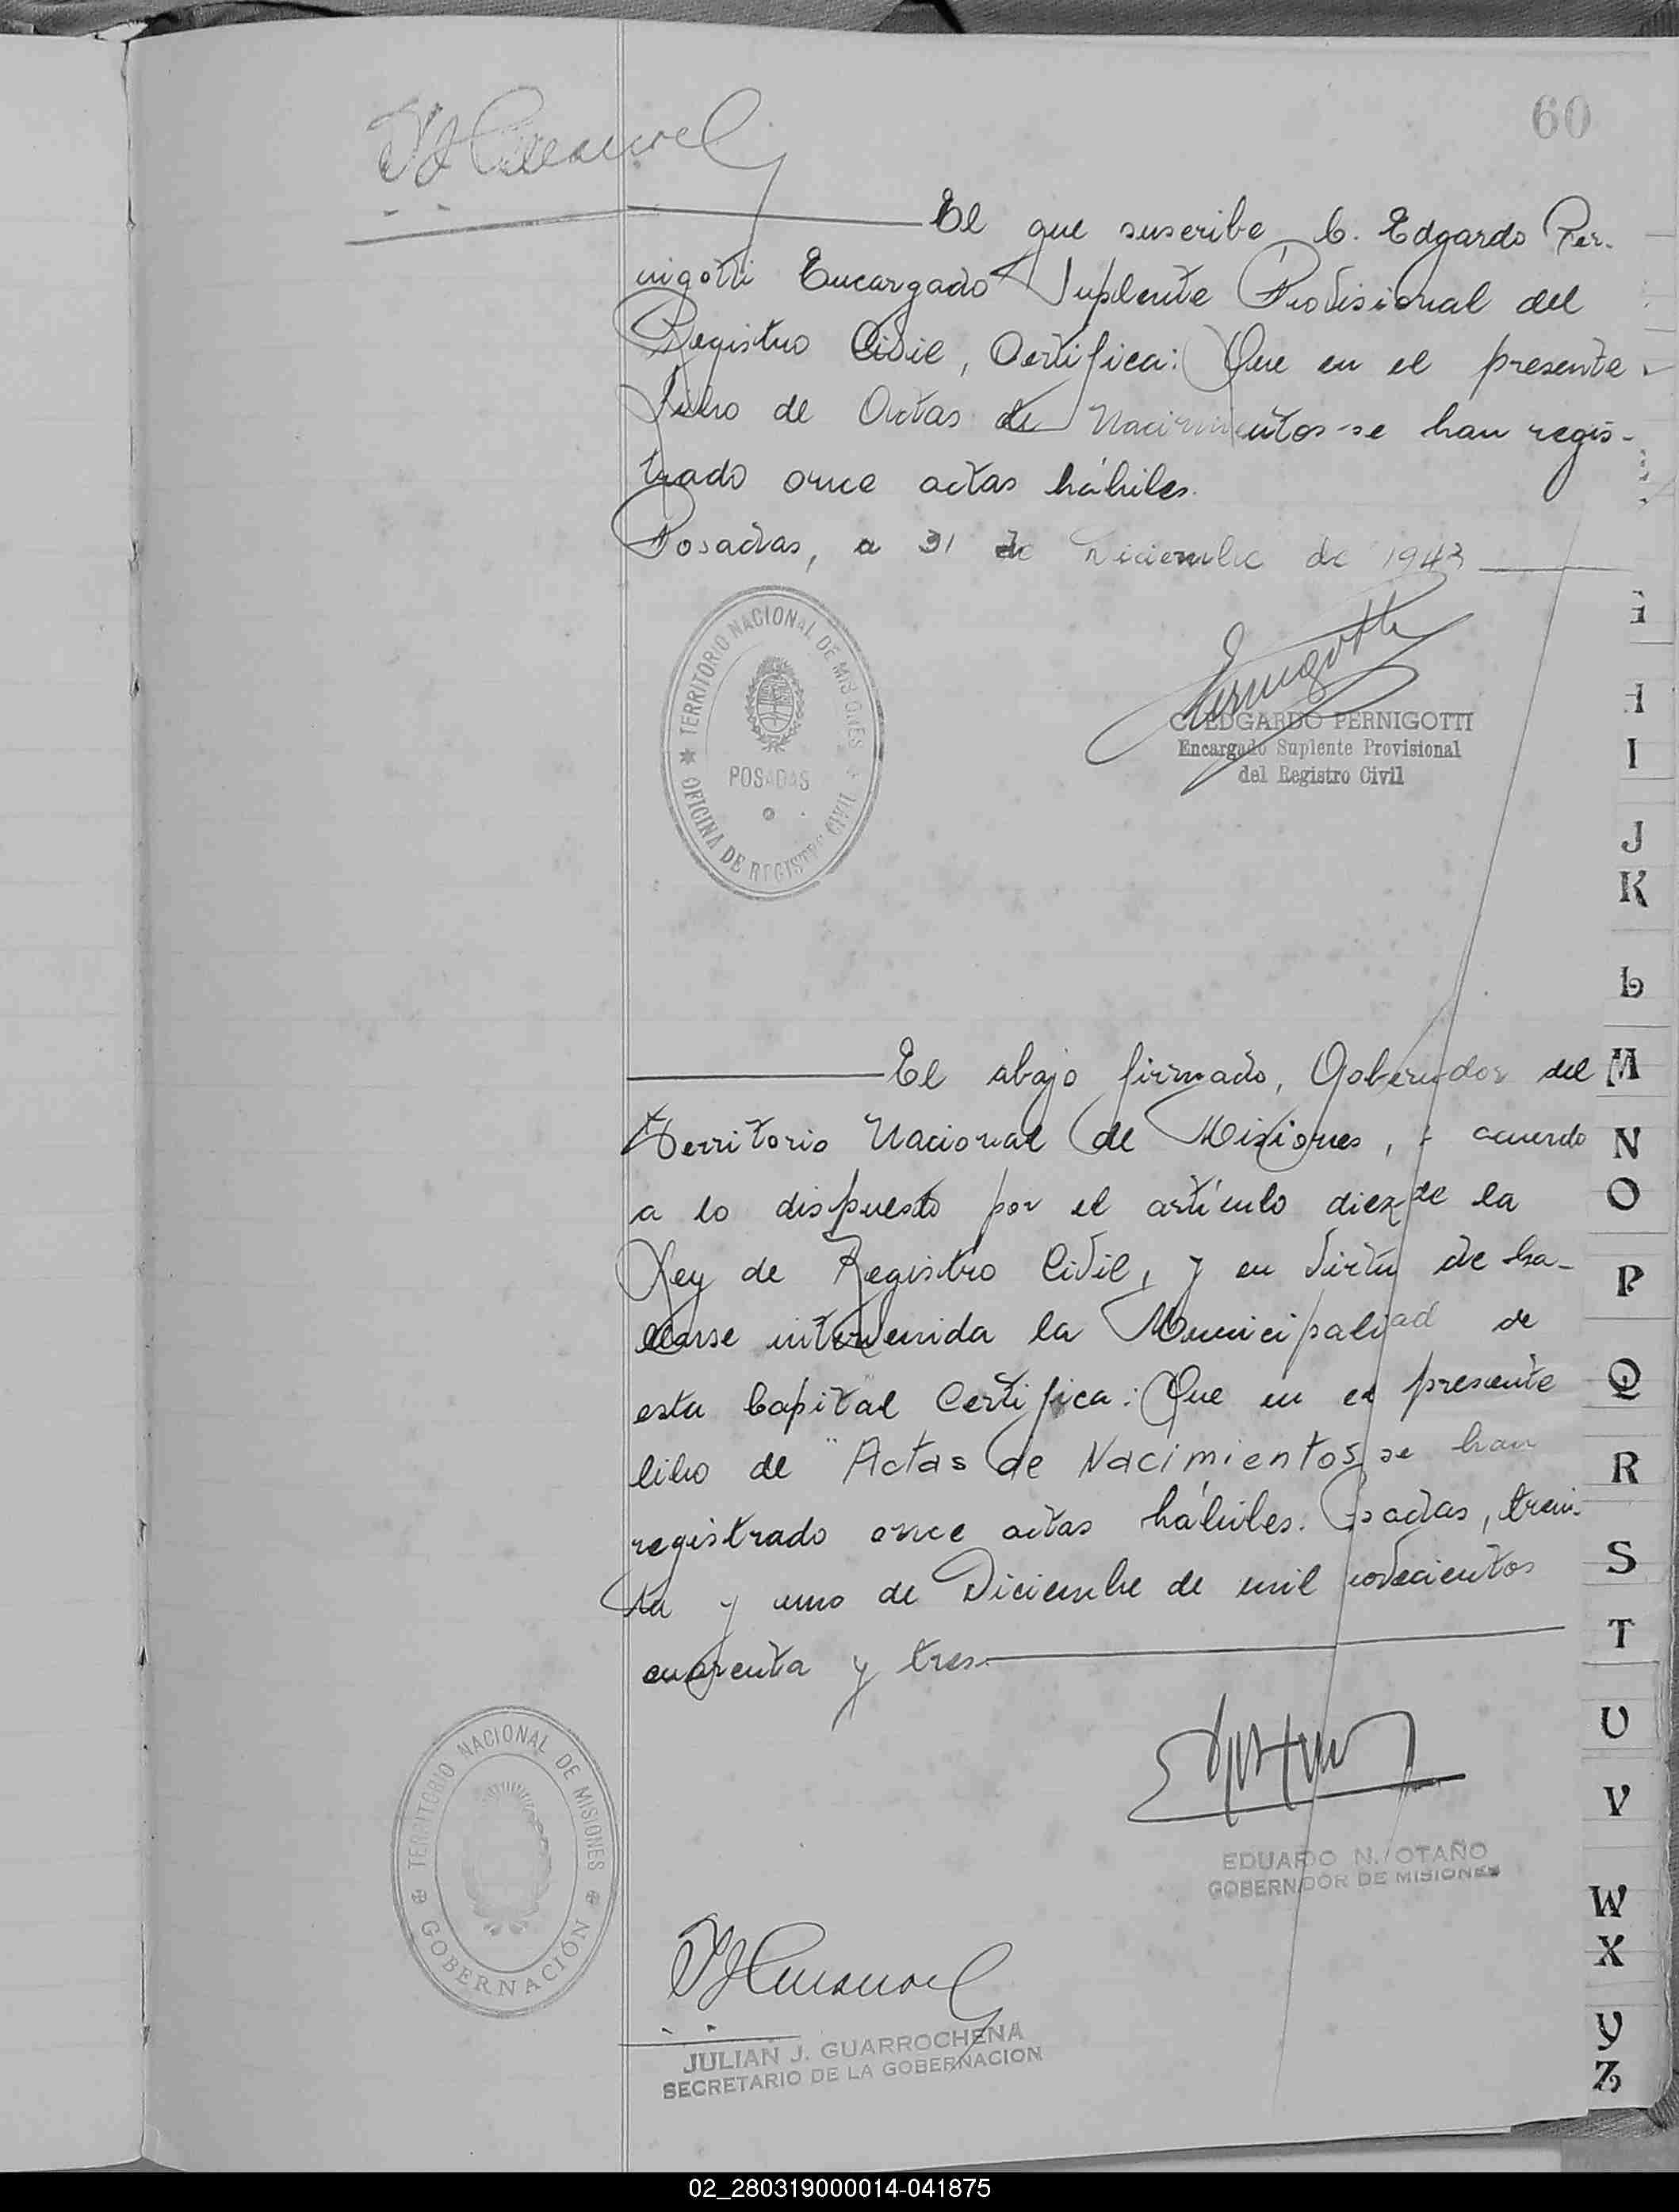 60
El que suscribe C. Edgardo Per-
nigotti Encargado Suplente Provisional del
Registro Civil, Certifica: Que en el presente
Libro de Actas de Nacimientos se han regis-
trado once actas hábiles.
Posadas, a 31 de Diciembre de 1943
TERRITORIO NACIONAL DE MISIONES
POSADAS
OFICINA DE REGISTRO CIVIL
Pernigotti
C. EDGARDO PERNIGOTTI
Encargado Suplente Provisional
del Registro Civil
El abajo firmado, Gobernador del
Territorio Nacional de Misiones, acuerdo
a lo dispuesto por el artículo diez de la
Ley de Registro Civil, y en virtud de ha-
llarse intervenida la Municipaliad de
esta Capital Certifica: Que en el presente
libro de "Actas de Nacimientos se han
registrado once actas hábiles. Posadas, trein-
ta y uno de Diciembre de mil novecientos
cuarenta y tres.
TERRITORIO NACIONAL DE MISIONES
GOBERNACIÓN
EDUARDO N. OTAÑO
GOBERNADOR DE MISIONES
JULIAN J. GUARROCHENA
SECRETARIO DE LA GOBERNACION
I
J
K
L
M
N
O
P
Q
R
S
T
U
V
W
X
Y
Z
02_280319000014-041875